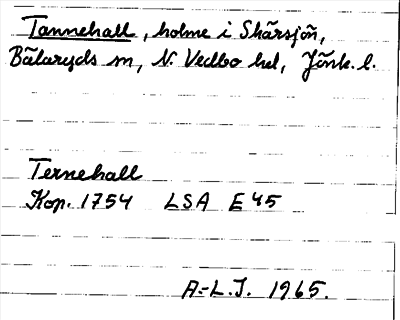 Tannehall, holme i Skärsjön,
Bälaryds sn, N. Vedbo hd, Jönk. l.
Ternehall
Kop. 1754 LSA E 45
A.-L.J. 1965.